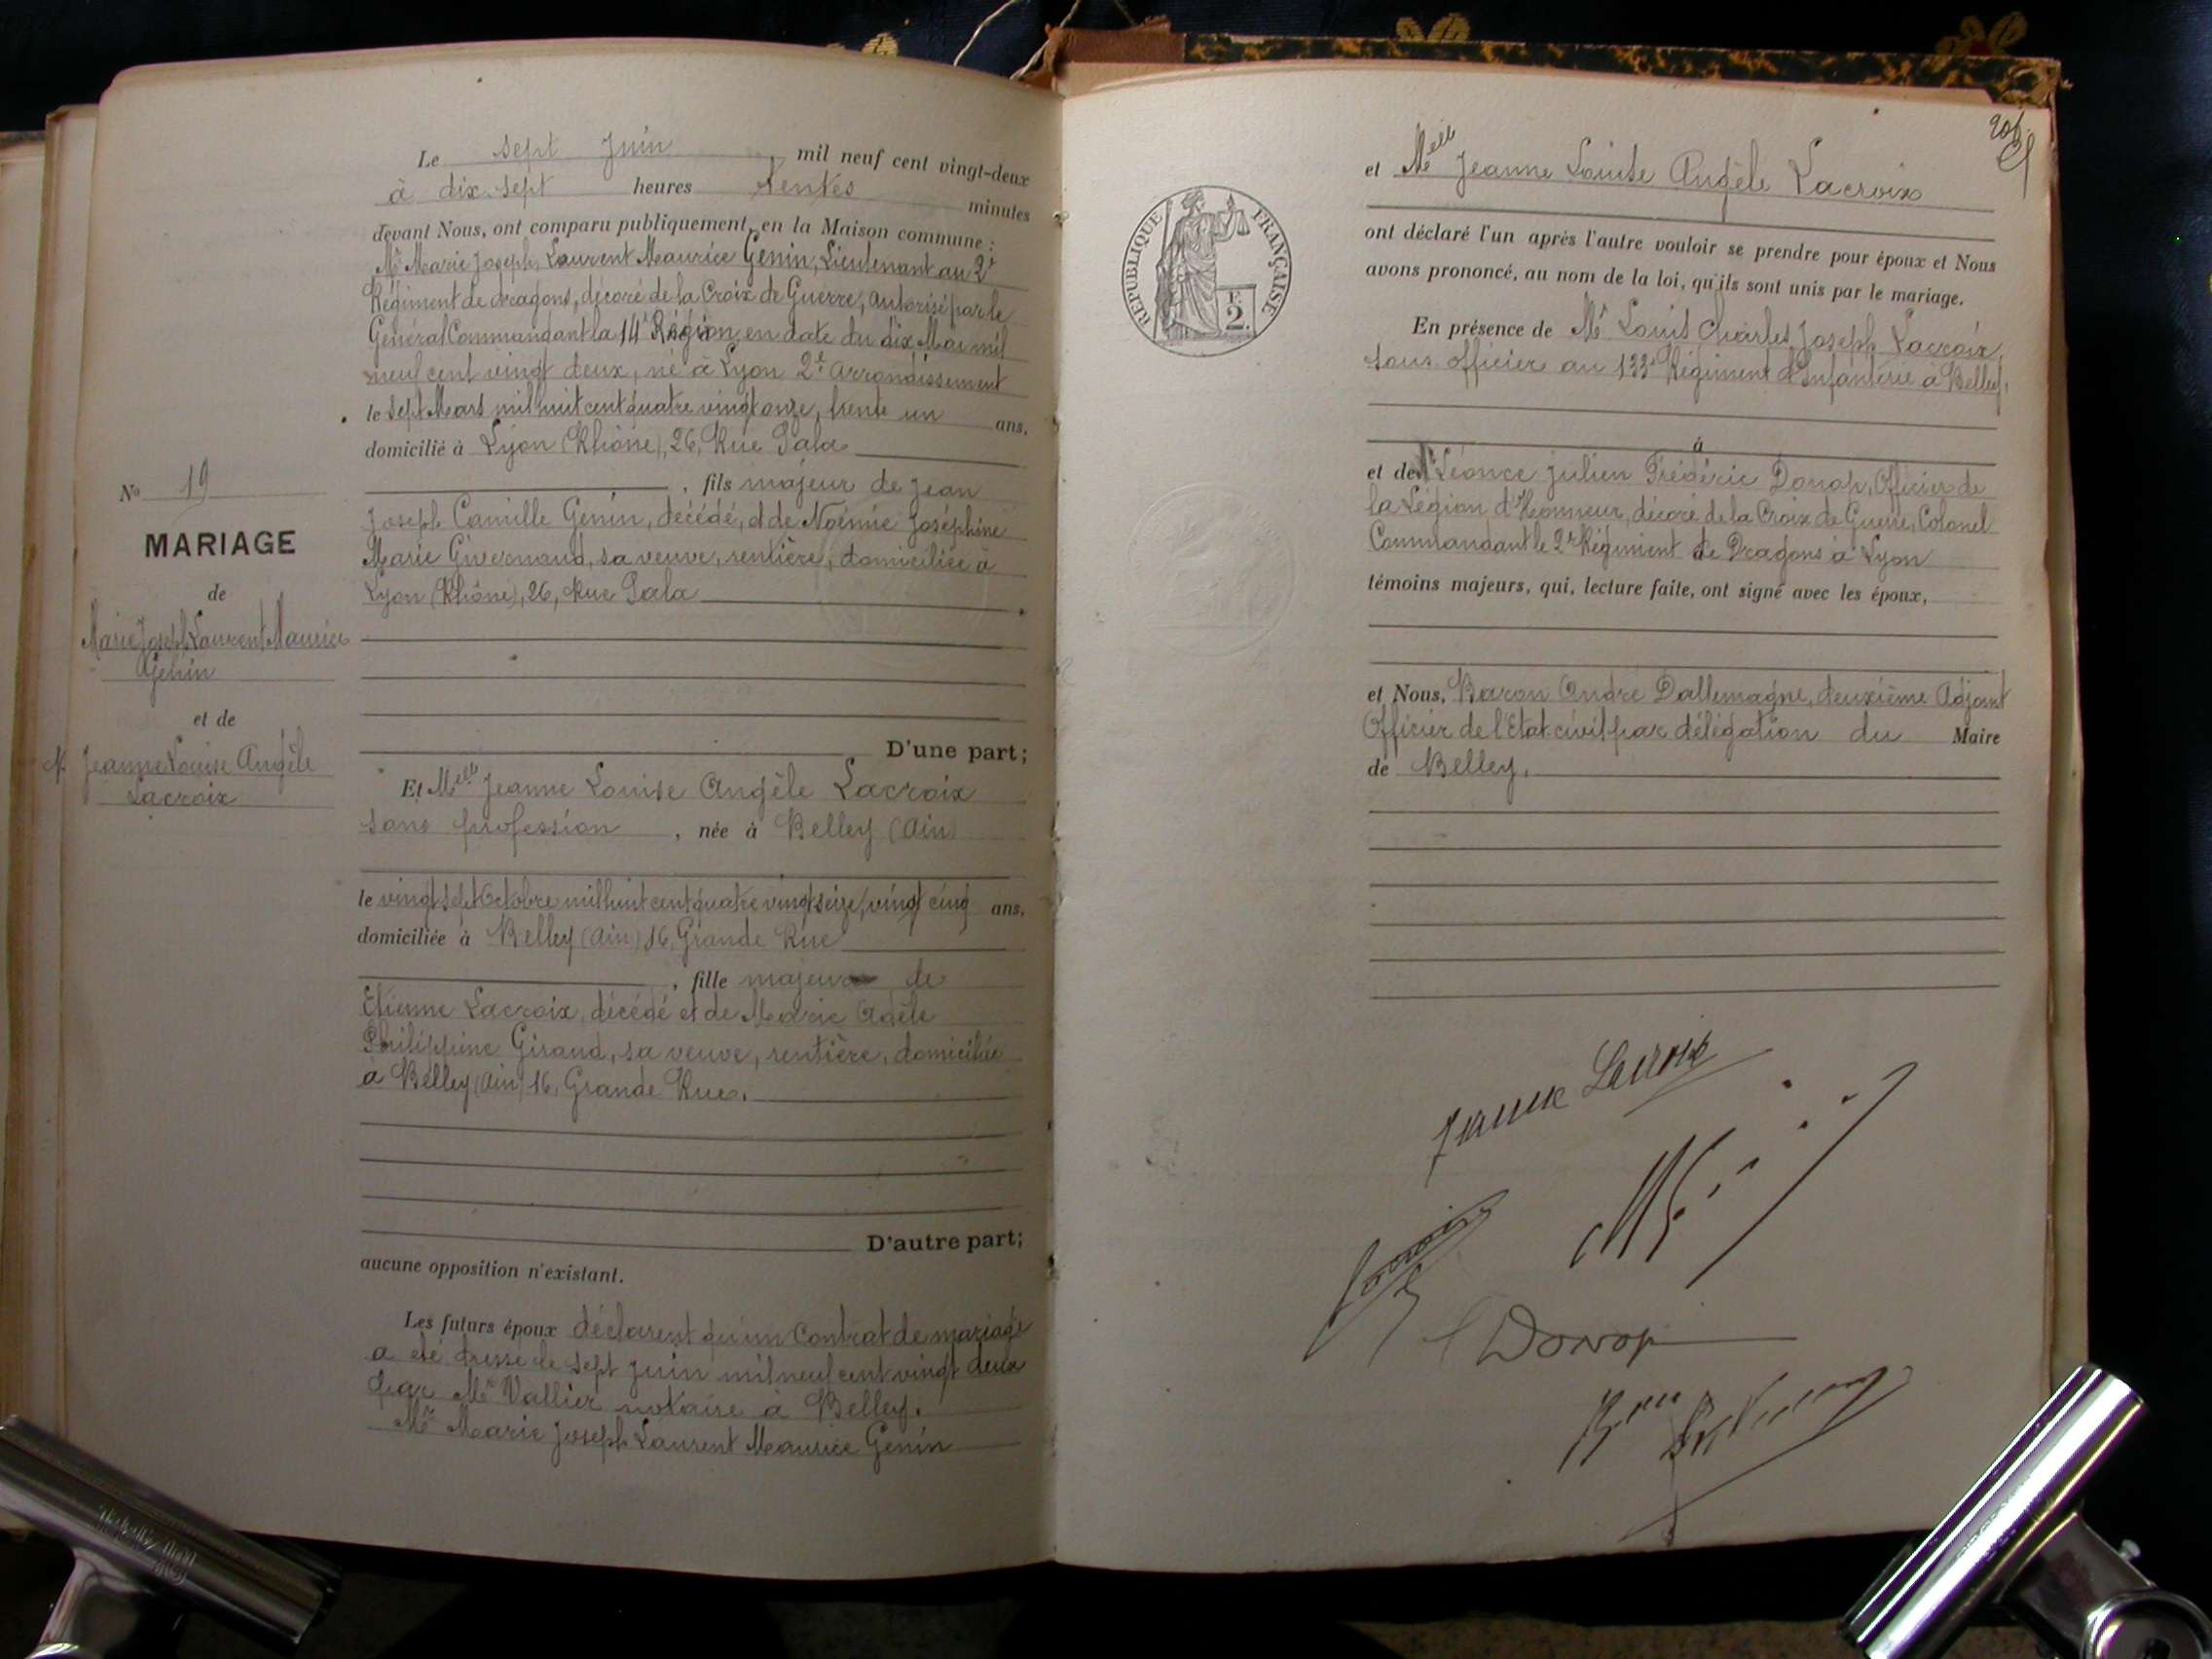 Le sept Juin, mil neuf cent vingt-deux
à dix-sept heures trentes minutes
devant Nous, ont comparu publiquement, en la Maison commune :
Mr Marie Joseph Laurent Maurice Genin, Lieutenant au 2e
Régiment de dragons, décoré de la Croix de Guerre, autorisé par le
Général Commandant la 14e Région en date du dix Mai mil
neuf cent vingt deux, né à Lyon 2e arrondissement
le sept Mars mil huit cent quatre vingt onze, trente un ans,
domicilié à Lyon (Rhône), 26, Rue Sala
, fils majeur de Jean
Joseph Camille Genin, décédé, et de Noémie Joséphine
Marie Givernaud, sa veuve, rentière, domiciliée à
Lyon (Rhône), 26, Rue Sala
No 19
MARIAGE
de
Marie Joseph Laurent Maurice
Genin
et de
Jeanne Louise Angèle
Lacroix
D'une part;
Et Melle Jeanne Louise Angèle Lacroix
sans profession, née à Belley (Ain)
le vingt sept Octobre mil huit cent quatre vingt seize, vingt cinq ans,
domiciliée à Belley (Ain) 16, Grande Rue
, fille majeure de
Etienne Lacroix, décédé et de Marie Adèle
Philippine Giraud, sa veuve, rentière, domiciliée
à Belley (Ain) 16, Grande Rue.
D'autre part;
aucune opposition n'existant.
Les futurs époux déclarent qu'un Contrat de mariage
a été dressé le sept Juin mil neuf cent vingt deux
par Me Vallier notaire à Belley.
Mr Marie Joseph Laurent Maurice Genin
et Melle Jeanne Louise Angèle Lacroix
RÉPUBLIQUE FRANÇAISE
F.
2.
ont déclaré l'un après l'autre vouloir se prendre pour époux et Nous
avons prononcé, au nom de la loi, qu'ils sont unis par le mariage.
En présence de Mr Louis Charles Joseph Lacroix,
sous officier au 133e Régiment d'Infanterie à Belley,
à
et de Mr Léonce Julien Frédéric Donop, Officier de
la Légion d'Honneur, décoré de la Croix de Guerre, Colonel
Commandant le 2e Régiment de Dragons à Lyon
témoins majeurs, qui, lecture faite, ont signé avec les époux,
et Nous, Baron André Dallemagne, deuxième Adjoint
Officier de l'Etat-civil par délégation du Maire
de Belley.
Jeanne Lacroix
Lacroix
Donop